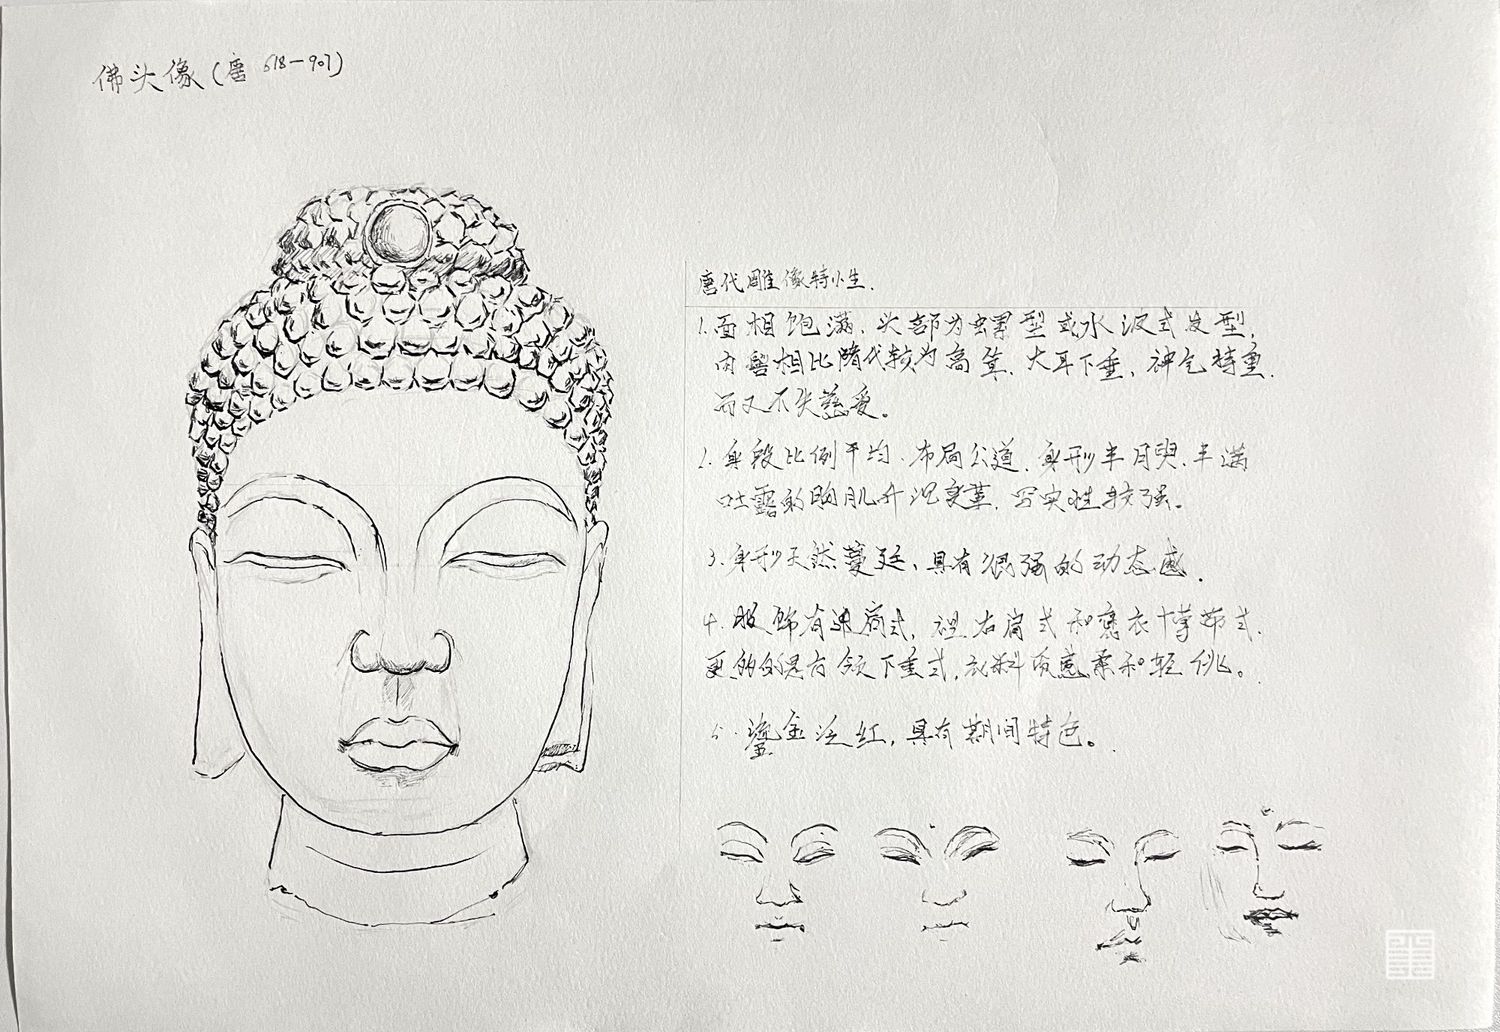 佛头像(唐 618-907)
唐代雕像特小生.
1.面相饱满.头部为螺型或水波式发型,
肉髻相比隋代较为高隼.大耳下垂,神气持重.
而又不失慈爱。
2.身段比例平均.布局公道.身形丰 丰满
吐露的胸肌 写实性较强。
3.身形天然蔓延,具有很强的动态感.
4.服饰有通肩式,袒右肩式和褒衣博带式.
更多的是方领下垂式,衣料质感柔和轻佻。
5.鎏金泛红,具有期间特色。